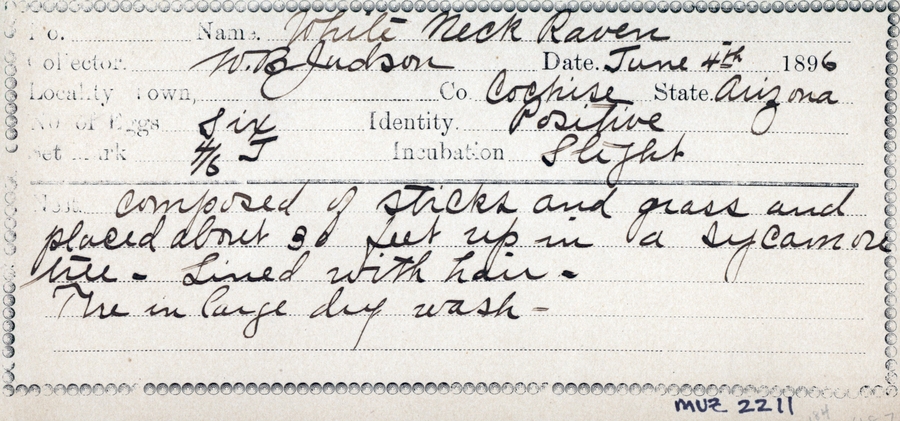 No. Name. White Neck Raven
Collector. W. B. Judson Date. June 4th 1896
Locality Town, Co. Cochise State. Arizona
No. of Eggs Six Identity. Positive
Set Mark 4/6 J Incubation Slight
Nest. composed of sticks and grass and
placed about 30 feet up in a sycamore
tree - Lined with hair -
Tree in large dry wash -
MVZ 2211